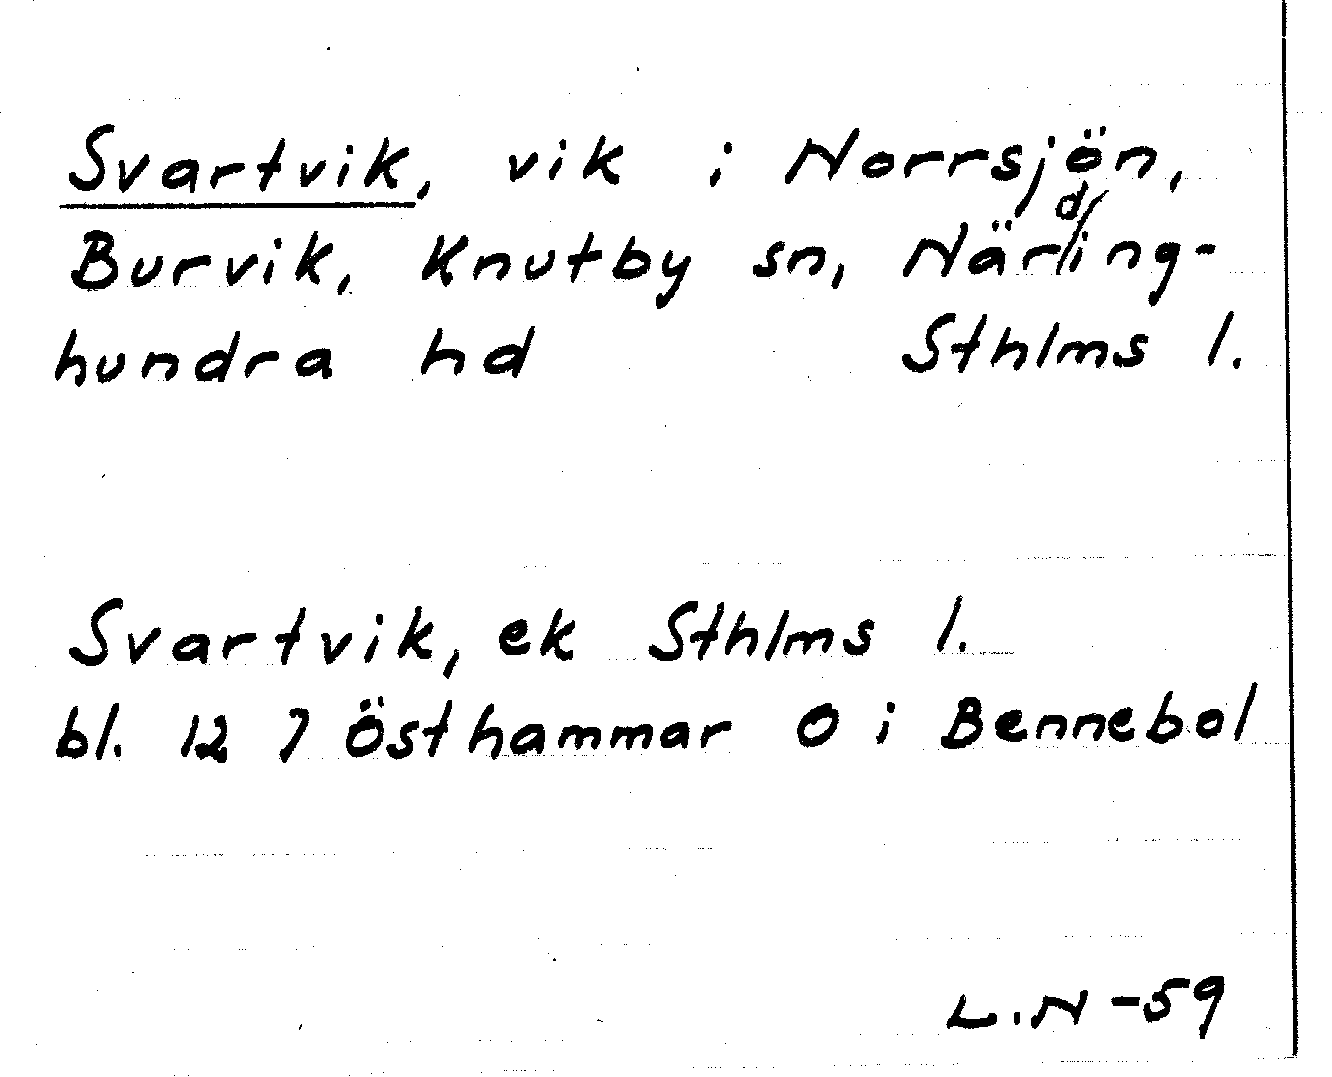 Svartvik, vik i Norrsjön,
Burvik, Knutby sn, Närding-
hundra hd Sthlms l.
Svartvik, ek Sthlms l.
bl. 12 7 Östhammar O i Bennebol
L.N -59